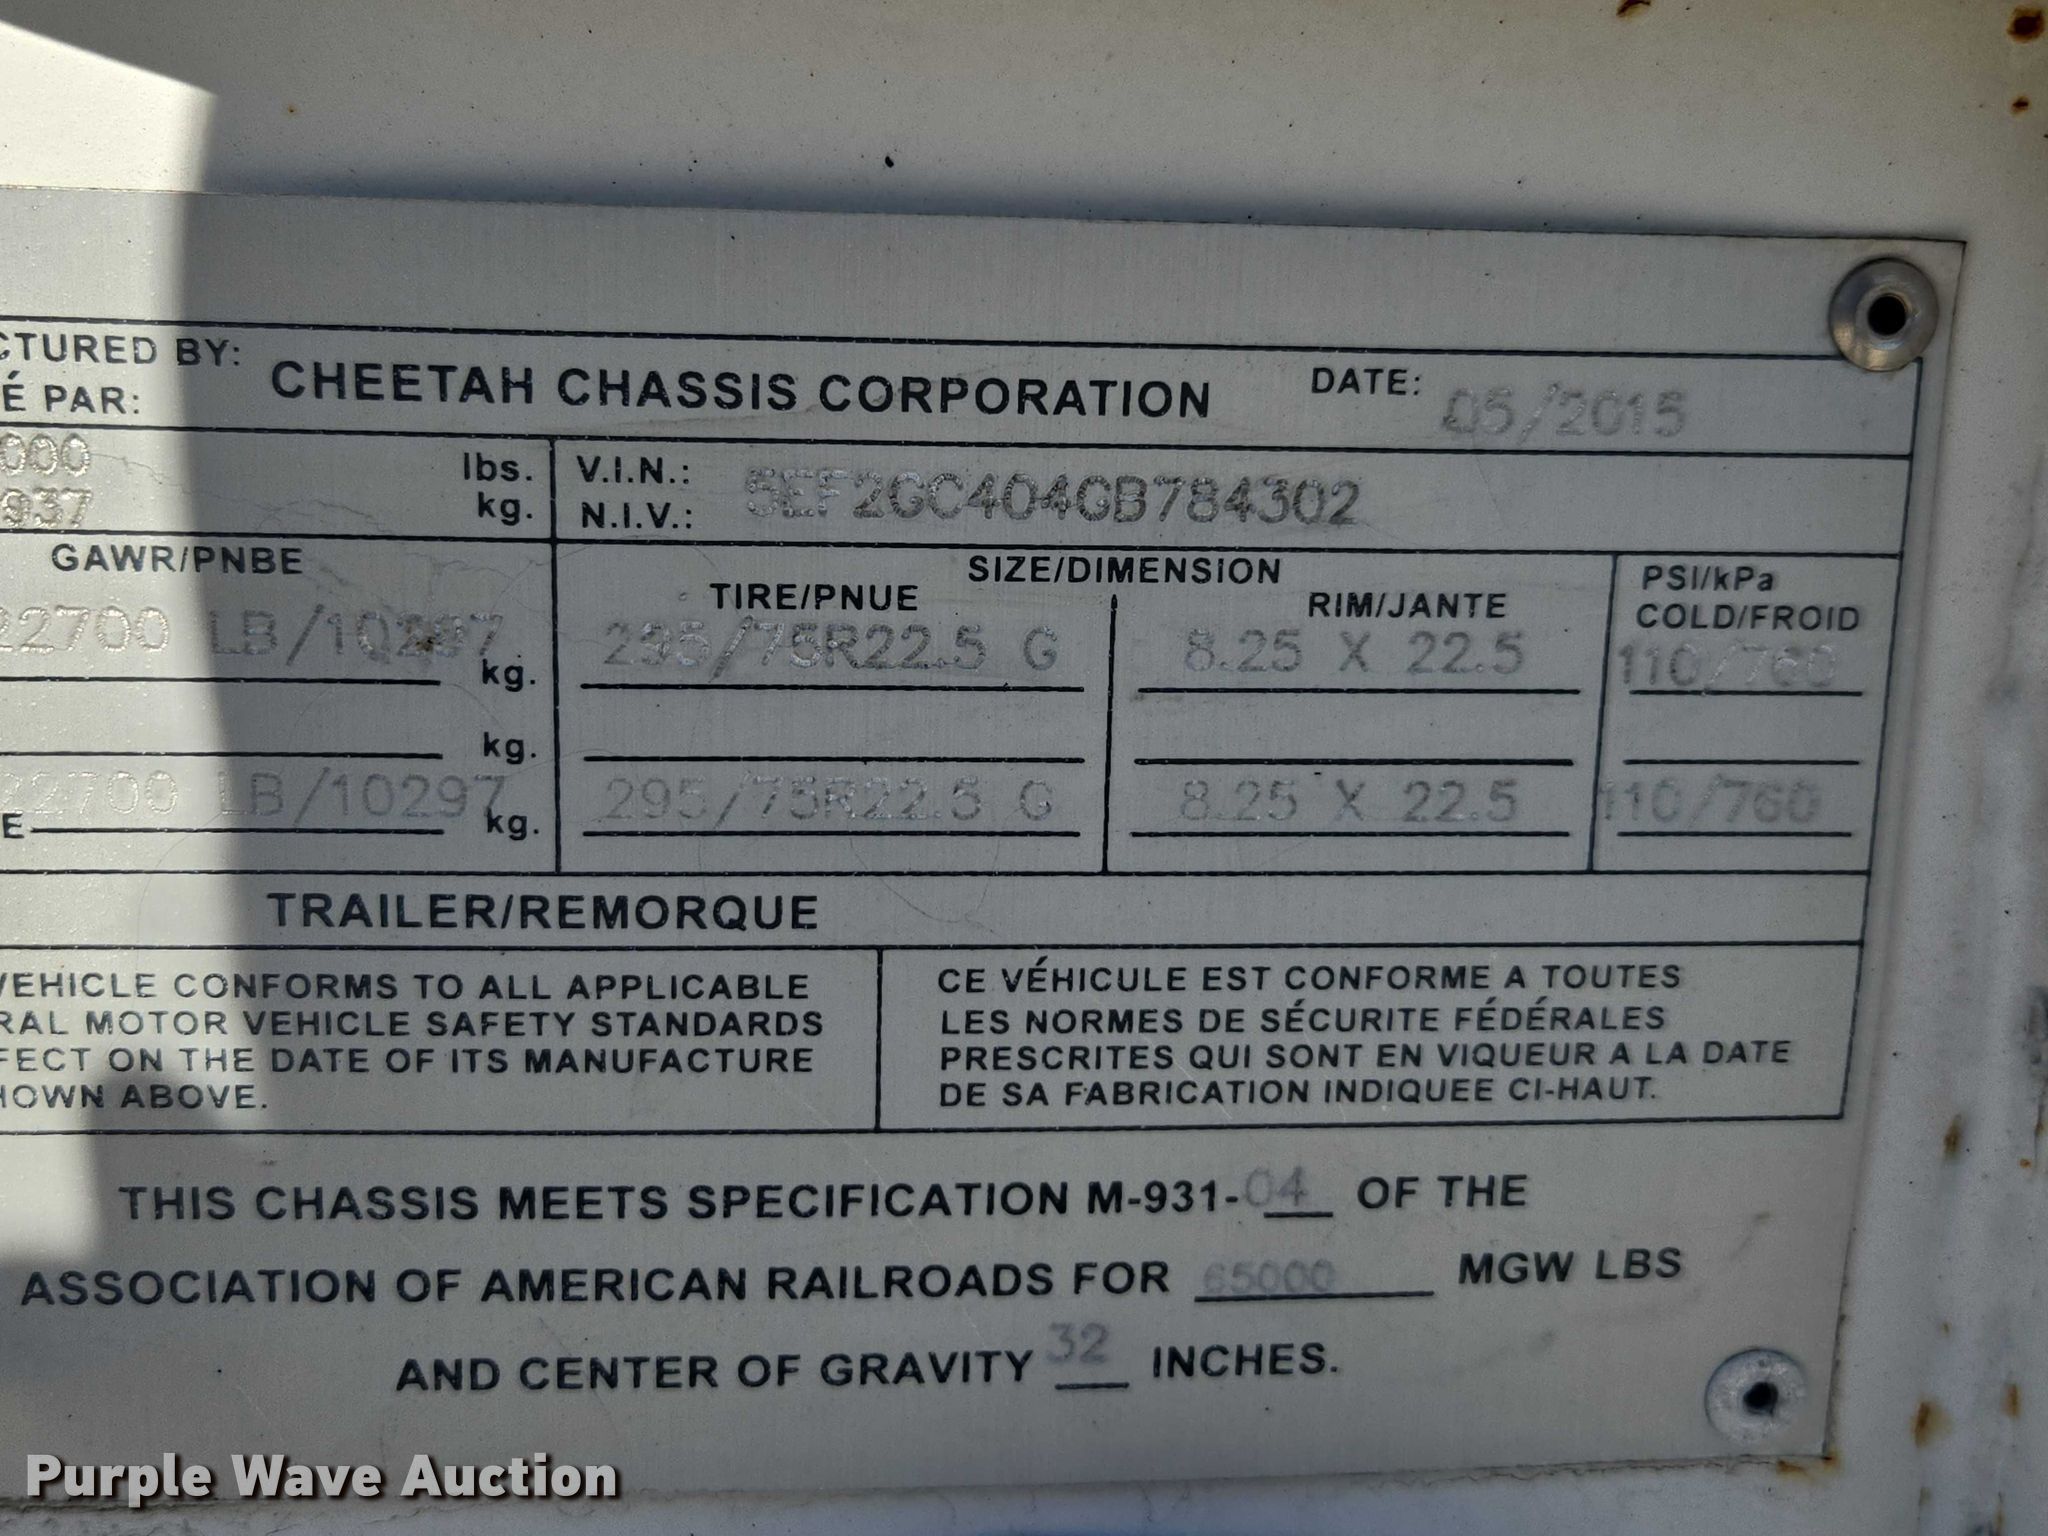 CTURED BY: CHEETAH CHASSIS CORPORATION DATE: 05/2015
É PAR:
000 lbs. V.I.N.: 5EF2GC404GB784302
937 kg. N.I.V.:
GAWR/PNBE SIZE/DIMENSION PSI/kPa
TIRE/PNUE RIM/JANTE COLD/FROID
22700 LB/10297 kg. 295/75R22.5 G 8.25 X 22.5 110/760
kg.
E 22700 LB/10297 kg. 295/75R22.5 G 8.25 X 22.5 110/760
TRAILER/REMORQUE
VEHICLE CONFORMS TO ALL APPLICABLE
RAL MOTOR VEHICLE SAFETY STANDARDS
FECT ON THE DATE OF ITS MANUFACTURE
HOWN ABOVE.
CE VÉHICULE EST CONFORME A TOUTES
LES NORMES DE SÉCURITE FÉDÉRALES
PRESCRITES QUI SONT EN VIQUEUR A LA DATE
DE SA FABRICATION INDIQUEE CI-HAUT.
THIS CHASSIS MEETS SPECIFICATION M-931-04 OF THE
ASSOCIATION OF AMERICAN RAILROADS FOR 65000 MGW LBS
AND CENTER OF GRAVITY 32 INCHES.
Purple Wave Auction